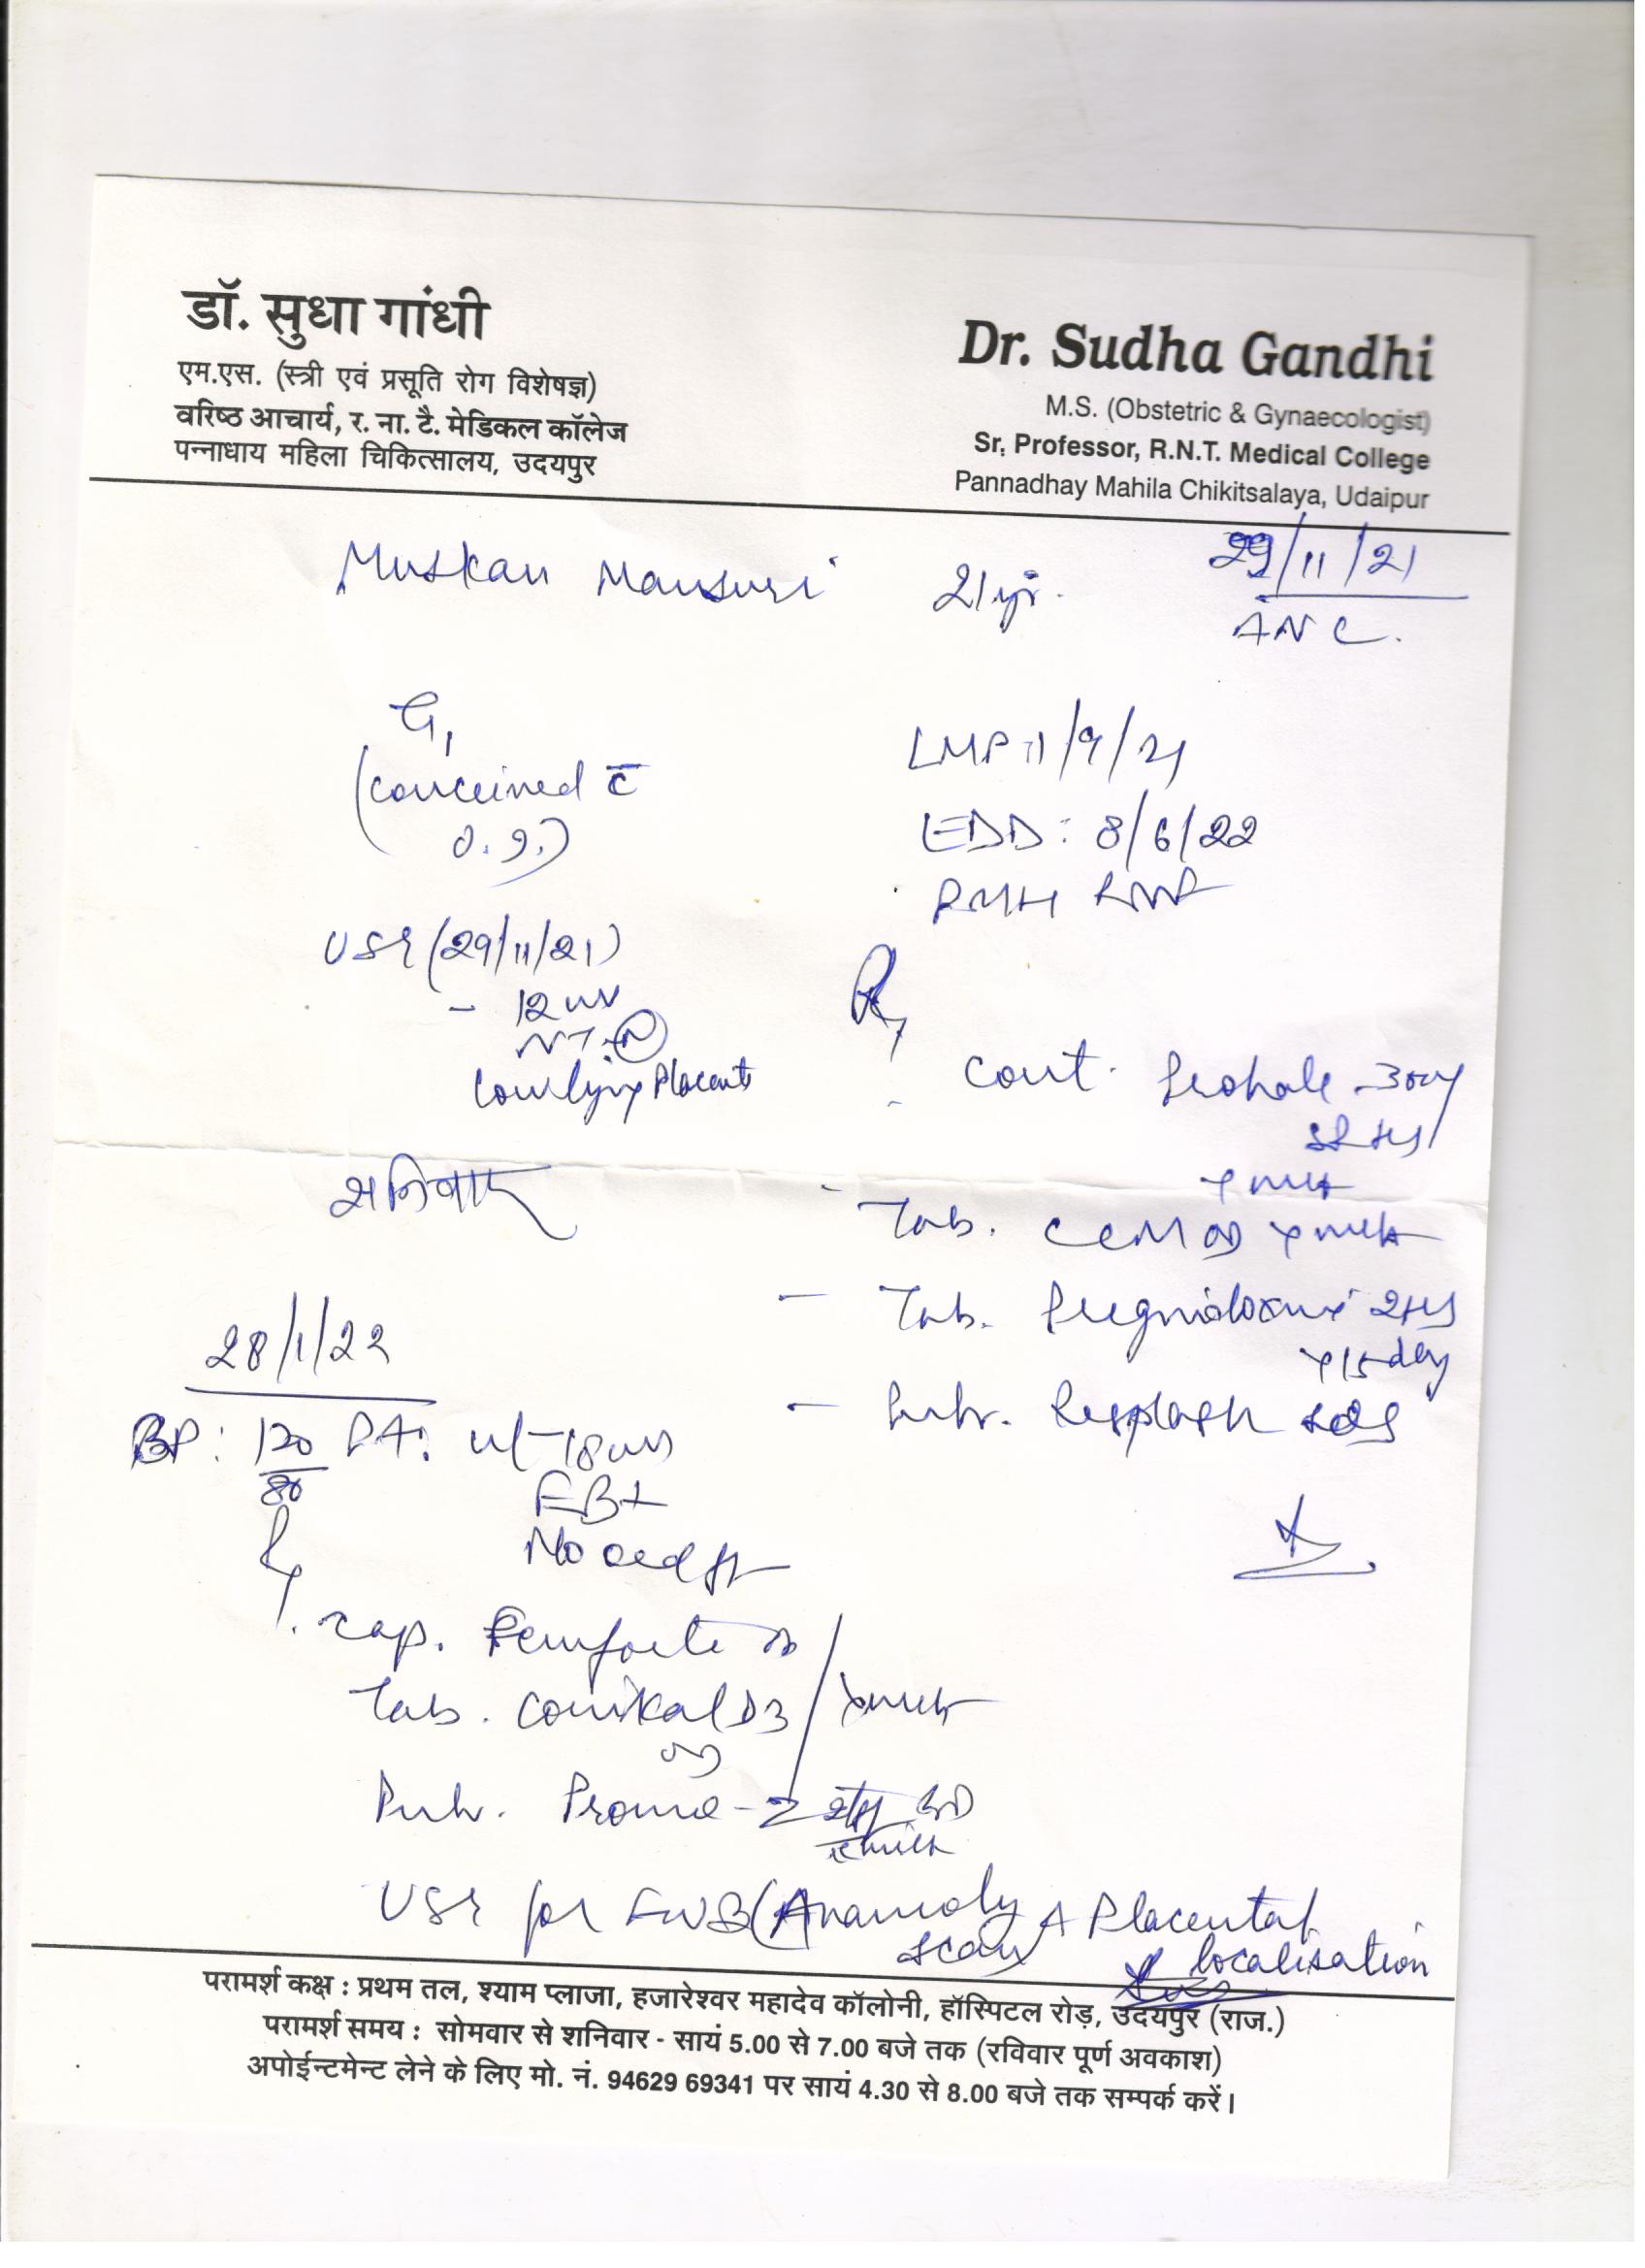 डॉ. सुधा गांधी
एम.एस. (स्त्री एवं प्रसूति रोग विशेषज्ञ)
वरिष्ठ आचार्य, र. ना. टै. मेडिकल कॉलेज
पन्नाधाय महिला चिकित्सालय, उदयपुर
Dr. Sudha Gandhi
M.S. (Obstetric & Gynaecologist)
Sr, Professor, R.N.T. Medical College
Pannadhay Mahila Chikitsalaya, Udaipur
29/11/21
Muskan Mansuri 21 yr.
ANC.
G1
(conceived c̄
O.I.)
LMP: 1/9/21
EDD: 8/6/22
PMH
USG (29/11/21)
- 12 wks
NT - (N)
Low lying Placenta
Rx
Cont.
शनिवार
- Tab. CCM OD
- Tab. 2HS
x 15 day
28/1/22
BP: 120/80 PA: ut - 18 wks
FB+
No oedema
Rx
Cap. Femforte OD
Tab. Conikal D3
OD
USG for FWB (Anamoly scan) & Placental localisation
परामर्श कक्ष : प्रथम तल, श्याम प्लाजा, हजारेश्वर महादेव कॉलोनी, हॉस्पिटल रोड़, उदयपुर (राज.)
परामर्श समय : सोमवार से शनिवार - सायं 5.00 से 7.00 बजे तक (रविवार पूर्ण अवकाश)
अपोईन्टमेन्ट लेने के लिए मो. नं. 94629 69341 पर सायं 4.30 से 8.00 बजे तक सम्पर्क करें।